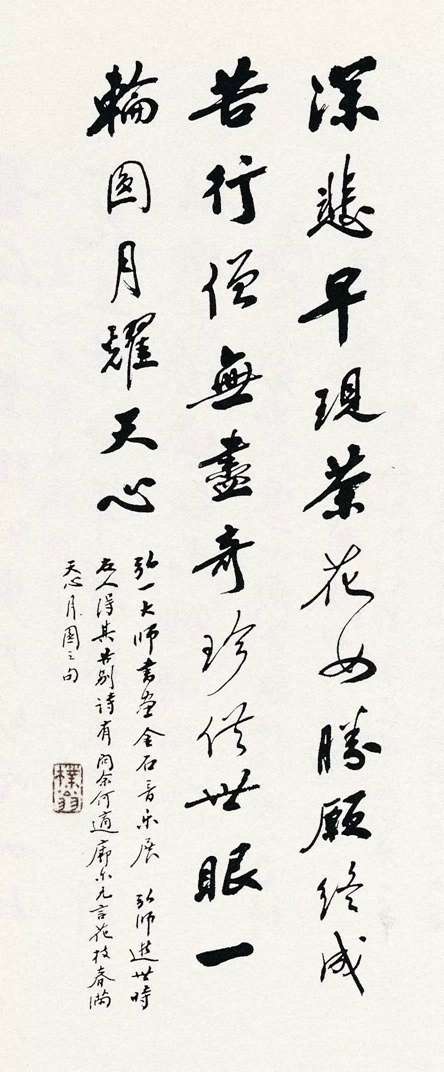 深悲早現茶花女勝願終成
苦行僧無盡奇珍供世眼一
輪圓月耀天心
弘一大师書畫金石音乐展 弘师逝世時
友人得其告别詩有问余何適廓尔言花枝春滿
天心月圓之句
樸翁